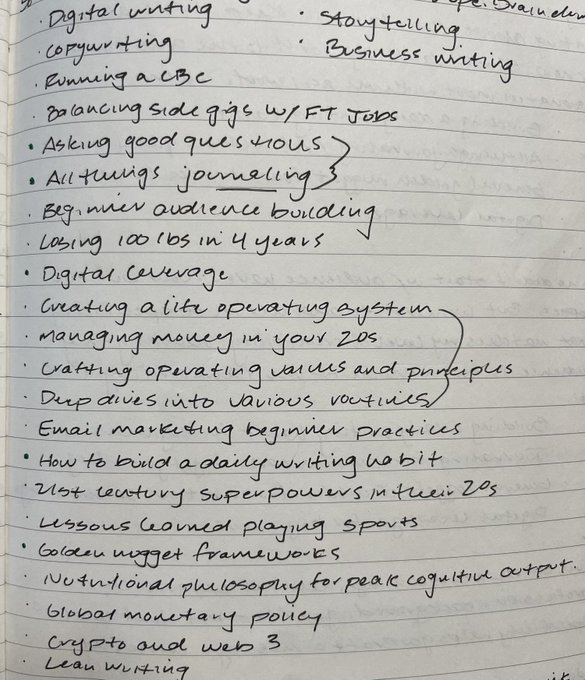 · Digital writing
· Storytelling
· Copywriting
· Business writing
· Running a CBC
· Balancing side gigs w/ FT Jobs
· Asking good questious
· All things journaling
· Beginner audience building
· Losing 100 lbs in 4 years
· Digital Leverage
· Creating a life operating system
· Managing money in your 20s
· Crafting operating values and principles
· Deep dives into various routines
· Email marketing beginner practices
· How to build a daily writing habit
· 21st century superpowers in their 20s
· Lessons learned playing sports
· Golden nugget frameworks
· Nutritional philosophy for peak cognitive output.
· Global monetary policy
· Crypto and web 3
· Lean writing